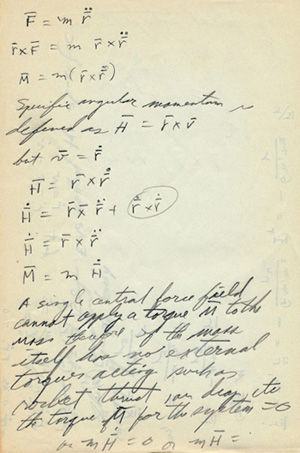 F̄ = m r̈
r̄×F̄ = m r̄×r̈
M̄ = m(r̄×r̈)
Specific angular momentum is
defined as H̄ = r̄×v̄
but v̄ = ṙ
H̄ = r̄×ṙ
Ḣ = r̄×r̈ + ṙ×ṙ
Ḣ = r̄×r̈
M̄ = m Ḣ
A single central force field
cannot apply a torque M̄ to the
mass therefore if the mass
itself has no external
torques acting such as
rocket thrust, air drag, etc
the torque M̄ for the system = 0
or mḢ = 0 or mH̄ =